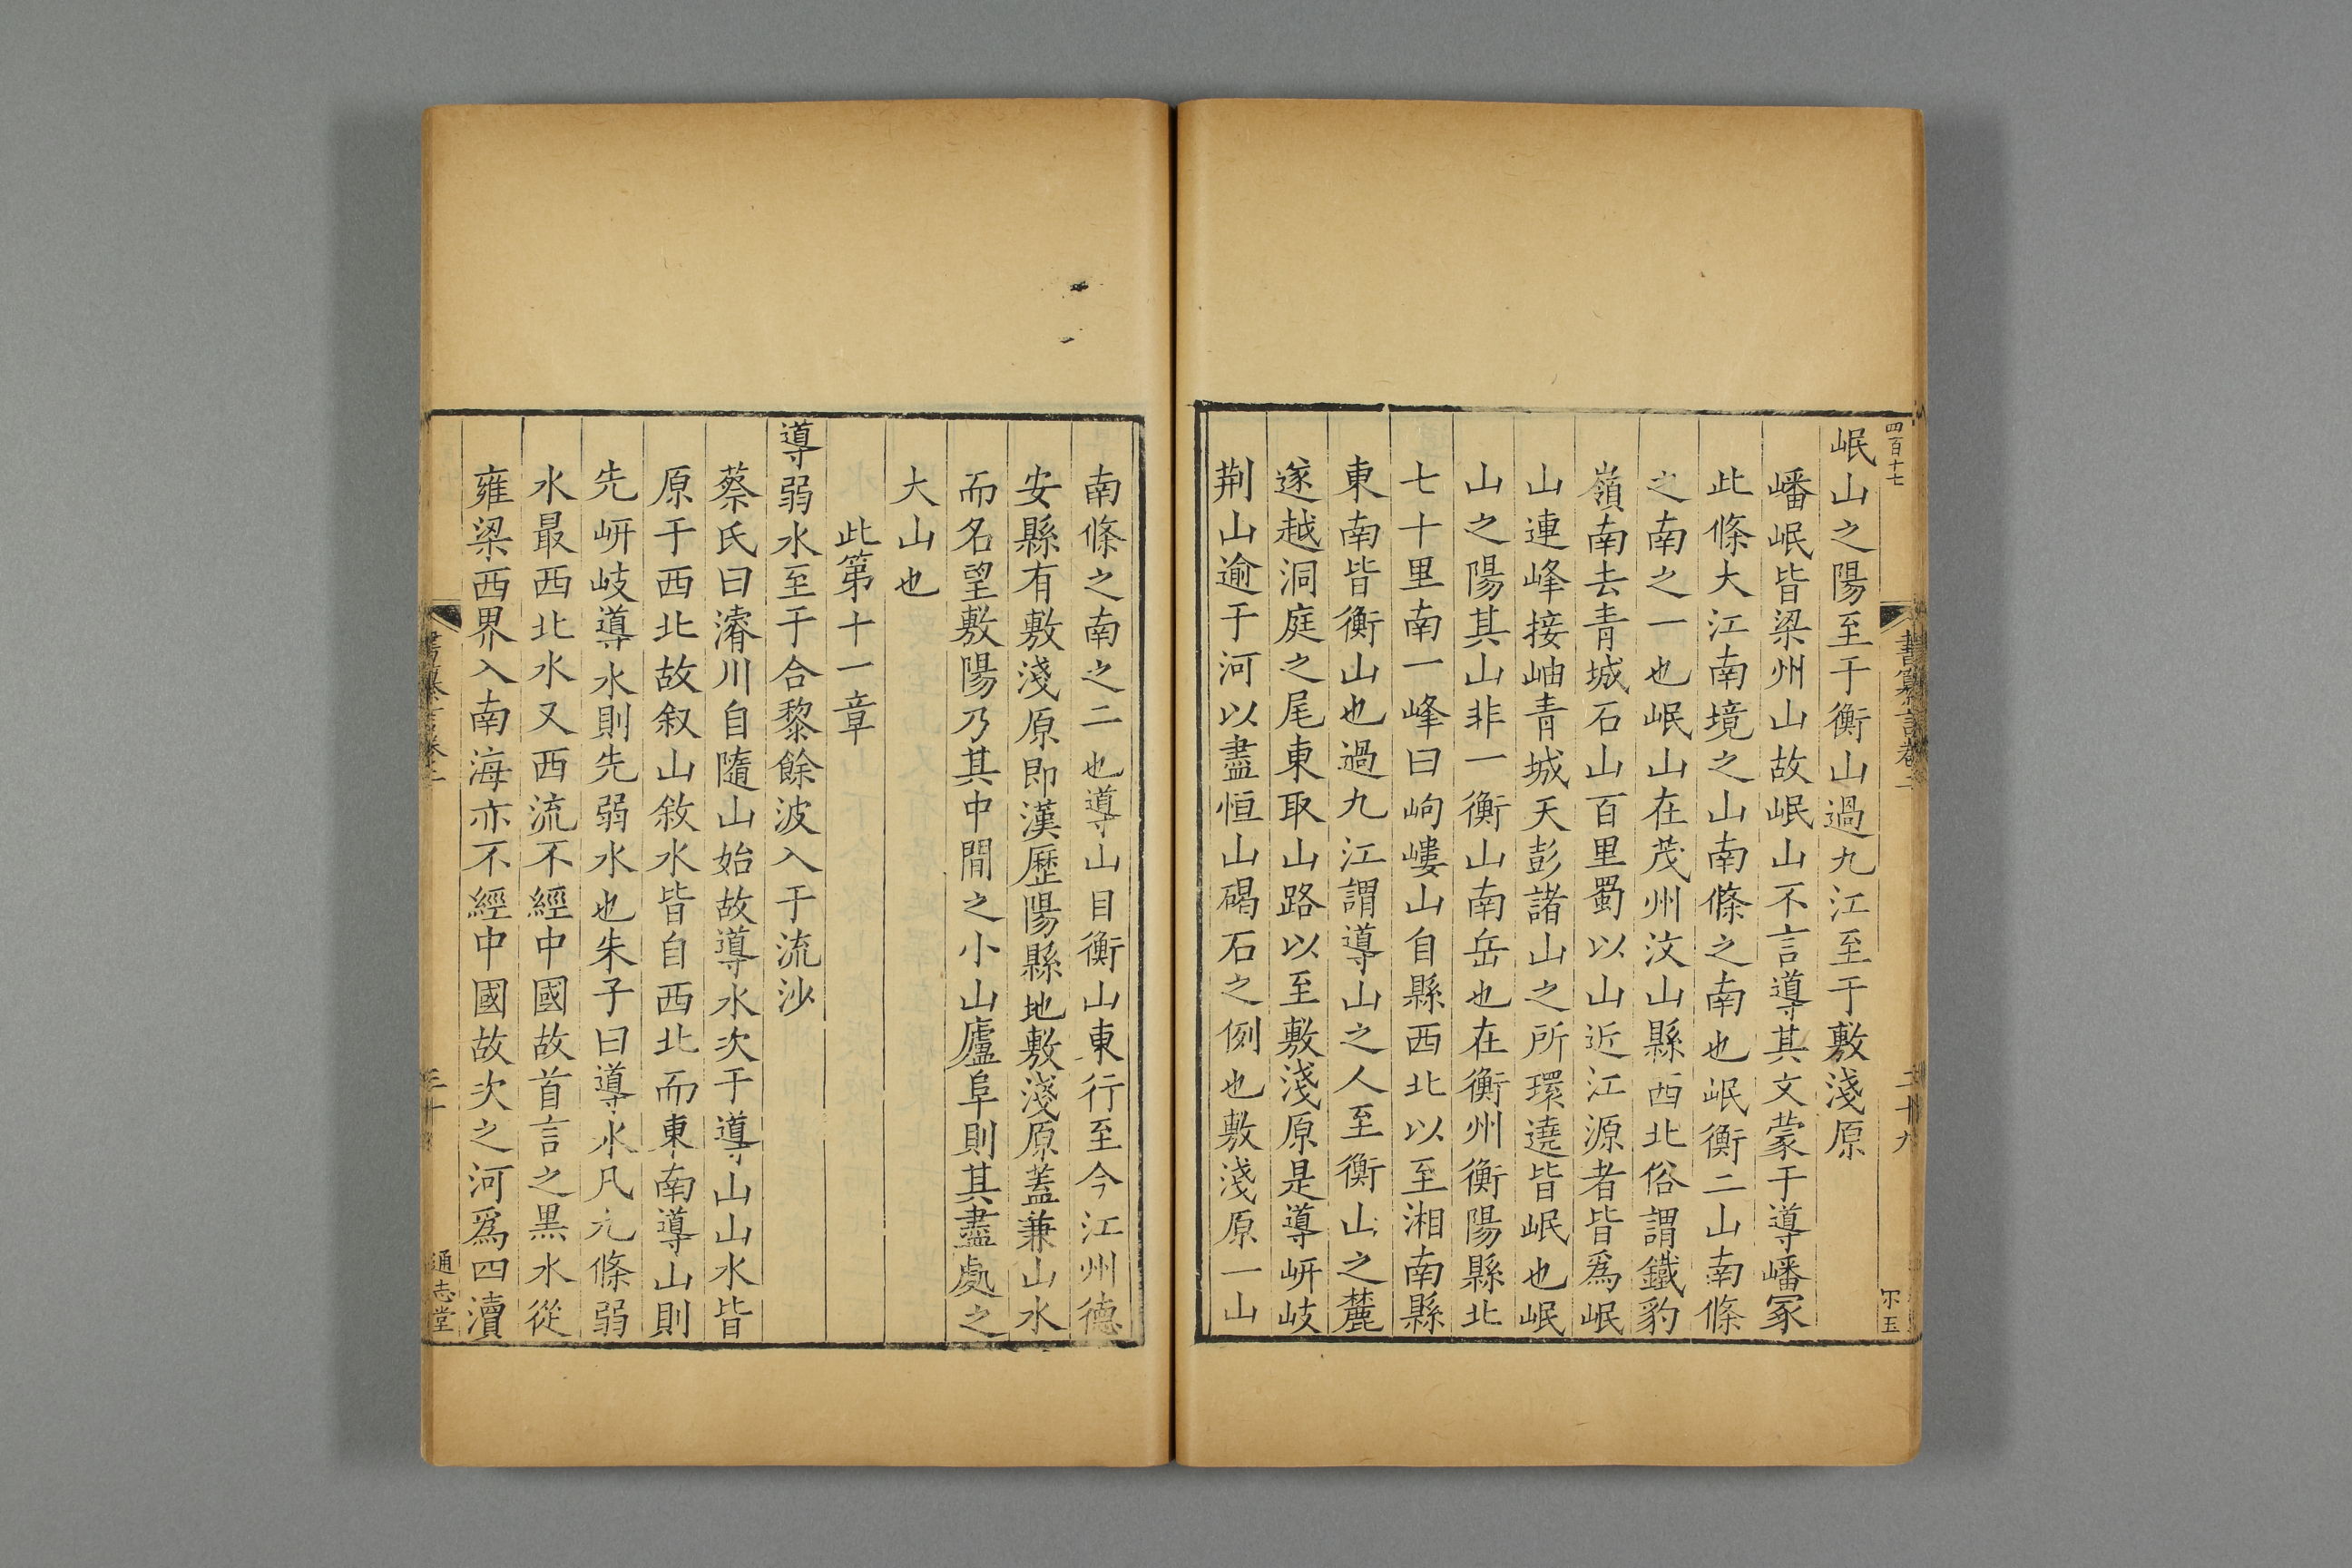 四百十七
岷山之陽至于衡山過九江至于敷淺原
嶓岷皆梁州山故岷山不言導其文蒙于導嶓冢
此條大江南境之山南條之南也岷衡二山南條
之南之一也岷山在茂州汶山縣西北俗謂鐵豹
嶺南去青城石山百里蜀以山近江源者皆爲岷
山連峰接岫青城天彭諸山之所環遶皆岷也岷
山之陽其山非一衡山南岳也在衡州衡陽縣北
七十里南一峰曰岣嶁山自縣西北以至湘南縣
東南皆衡山也過九江謂導山之人至衡山之麓
遂越洞庭之尾東取山路以至敷淺原是導岍岐
荆山逾于河以盡恒山碣石之例也敷淺原一山
書纂言卷二
二十九
尒玉
南條之南之二也導山目衡山東行至今江州德
安縣有敷淺原即漢歷陽縣地敷淺原蓋兼山水
而名望敷陽乃其中間之小山廬阜則其盡處之
大山也
此第十一章
導弱水至于合黎餘波入于流沙
蔡氏曰濬川自隨山始故導水次于導山山水皆
原于西北故叙山敘水皆自西北而東南導山則
先岍岐導水則先弱水也朱子曰導水凡九條弱
水最西北水又西流不經中國故首言之黒水從
雍梁西界入南海亦不經中國故次之河爲四瀆
書纂言卷二
三十
通志堂